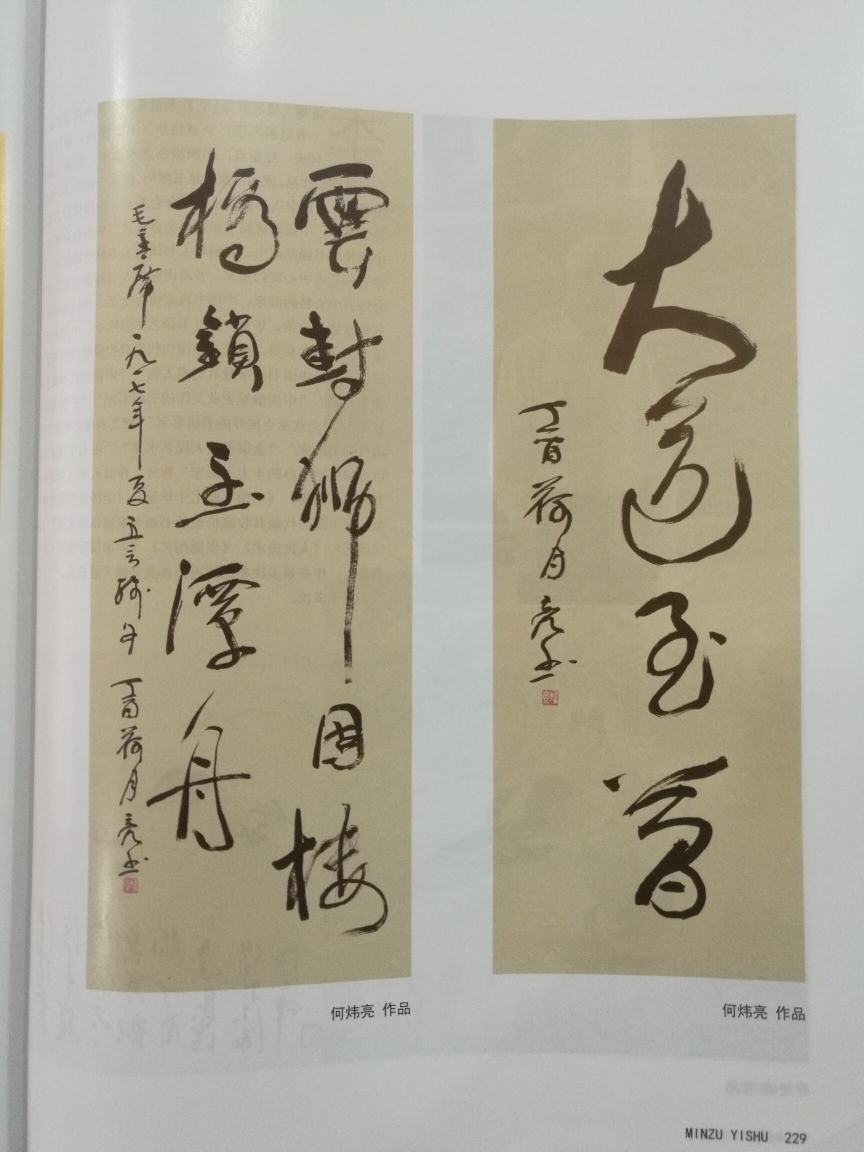 大道至簡
丁酉荷月亮书
何炜亮 作品
雲封狮固楼
橋鎖玉潭舟
毛主席一九一七年夏五言联句 丁酉荷月亮书
何炜亮 作品
MINZU YISHU 229